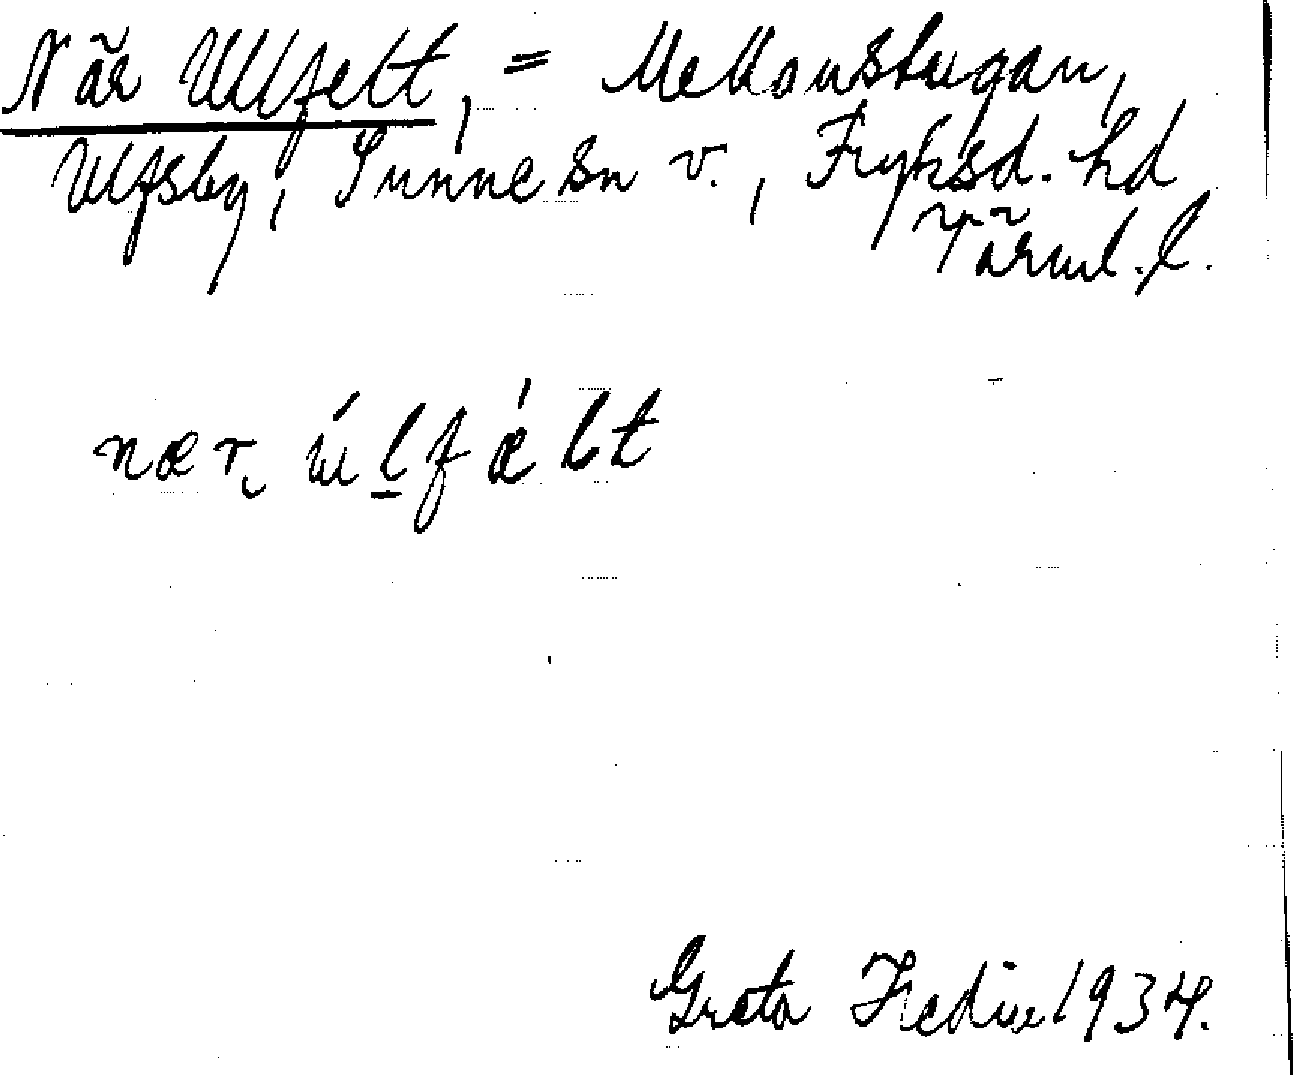 När Ulfelt, = Mellomstugan,
Ulfsby, Sunne sn v., Fryksd. hd
Värml. l.
nær úlfǽlt
Greta Hedin 1934.